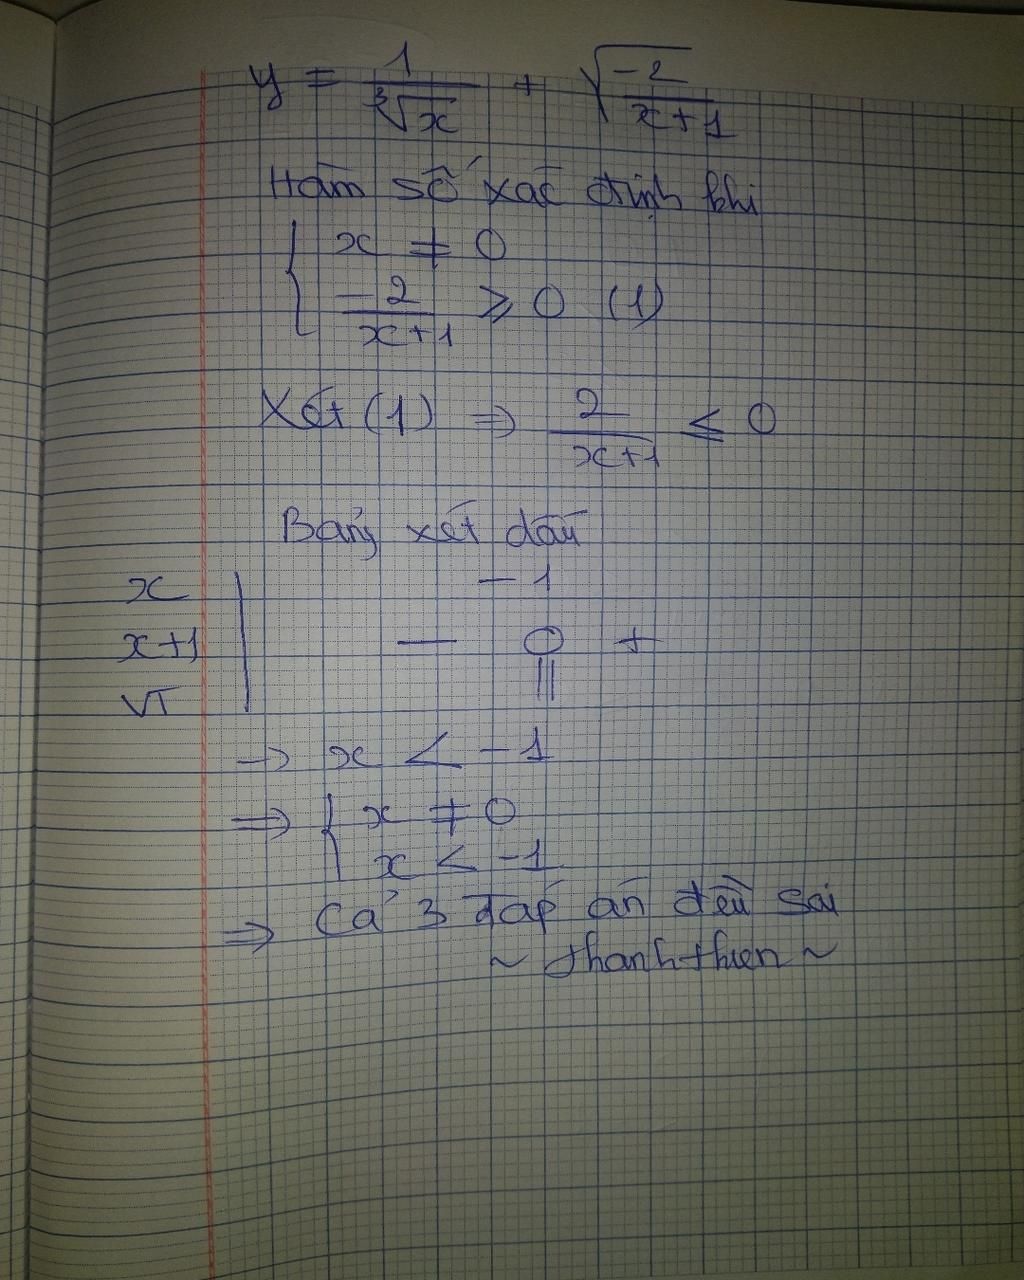 y = 1/∛x + √(-2/(x+1))
Hàm số xác định khi
{ x ≠ 0
-2/(x+1) ⩾ 0 (1)
Xét (1) ⇒ 2/(x+1) ≤ 0
Bảng xét dấu
x | -1
x+1 | — 0 +
VT | ||
→ x < -1
⇒ { x ≠ 0
x < -1
⇒ Cả 3 đáp án đều sai
~ thanhthien ~